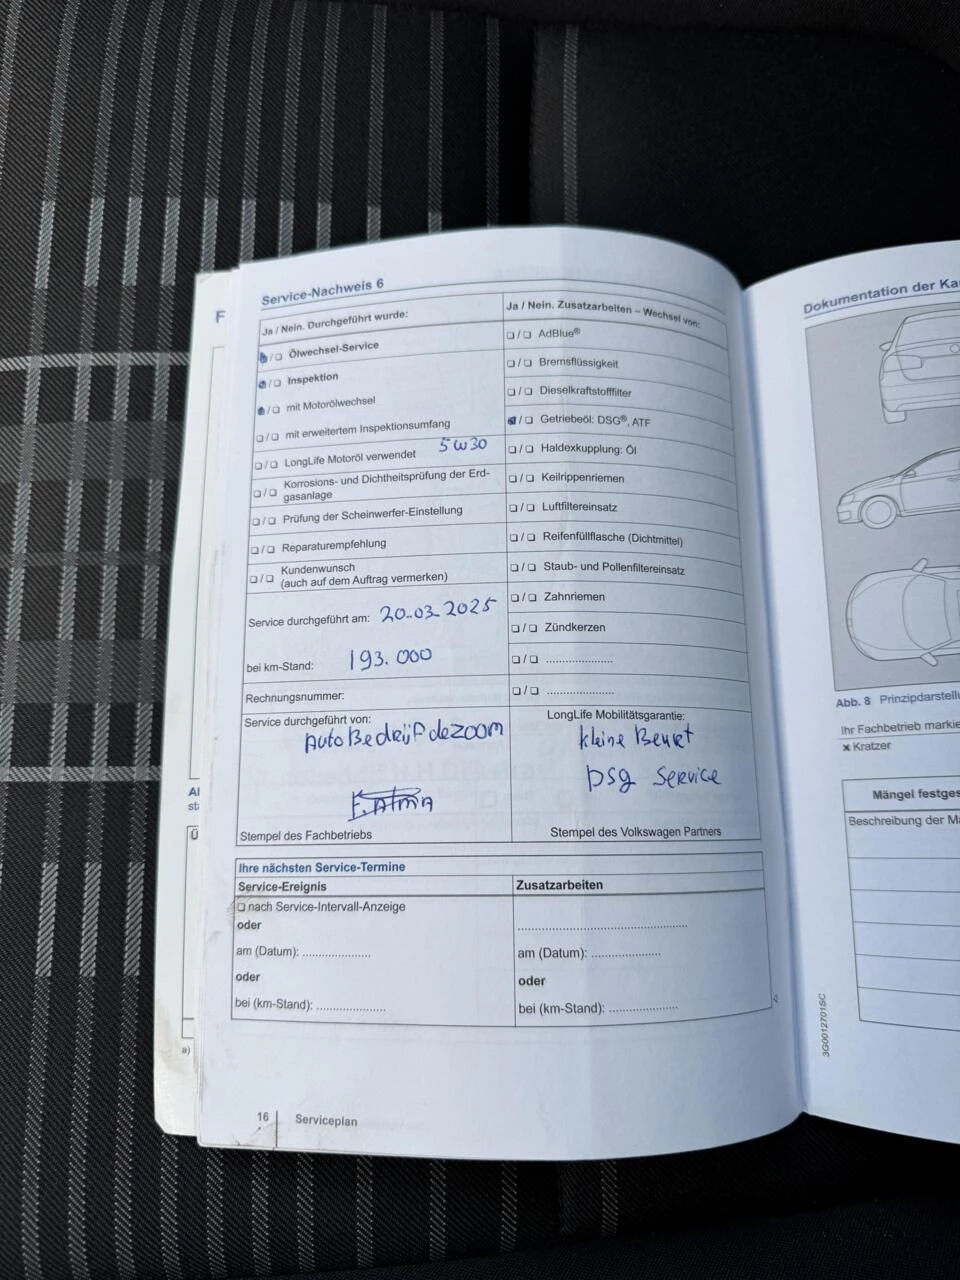 Service-Nachweis 6
Ja / Nein. Durchgeführt wurde:
❑/❑ Ölwechsel-Service
❑/❑ Inspektion
❑/❑ mit Motorölwechsel
❑/❑ mit erweitertem Inspektionsumfang
5W30
❑/❑ LongLife Motoröl verwendet
❑/❑ Korrosions- und Dichtheitsprüfung der Erd-
gasanlage
❑/❑ Prüfung der Scheinwerfer-Einstellung
❑/❑ Reparaturempfehlung
❑/❑ Kundenwunsch
(auch auf dem Auftrag vermerken)
Service durchgeführt am: 20-03-2025
bei km-Stand: 193.000
Rechnungsnummer:
Service durchgeführt von:
AutoBedrijf dezoom
Stempel des Fachbetriebs
Ja / Nein. Zusatzarbeiten – Wechsel von:
❑/❑ AdBlue®
❑/❑ Bremsflüssigkeit
❑/❑ Dieselkraftstofffilter
❑/❑ Getriebeöl: DSG®, ATF
❑/❑ Haldexkupplung: Öl
❑/❑ Keilrippenriemen
❑/❑ Luftfiltereinsatz
❑/❑ Reifenfüllflasche (Dichtmittel)
❑/❑ Staub- und Pollenfiltereinsatz
❑/❑ Zahnriemen
❑/❑ Zündkerzen
❑/❑ .....................
❑/❑ .....................
LongLife Mobilitätsgarantie:
kleine Beurt
DSG Service
Stempel des Volkswagen Partners
Ihre nächsten Service-Termine
Service-Ereignis
❑ nach Service-Intervall-Anzeige
oder
am (Datum): .....................
oder
bei (km-Stand): .....................
Zusatzarbeiten
.....................................................
am (Datum): .....................
oder
bei (km-Stand): .....................
16 Serviceplan
F
Al
st
Ü
a)
Dokumentation der Ka
Abb. 8 Prinzipdarstell
Ihr Fachbetrieb markie
× Kratzer
Mängel festges
Beschreibung der Mä
3G0012701SC